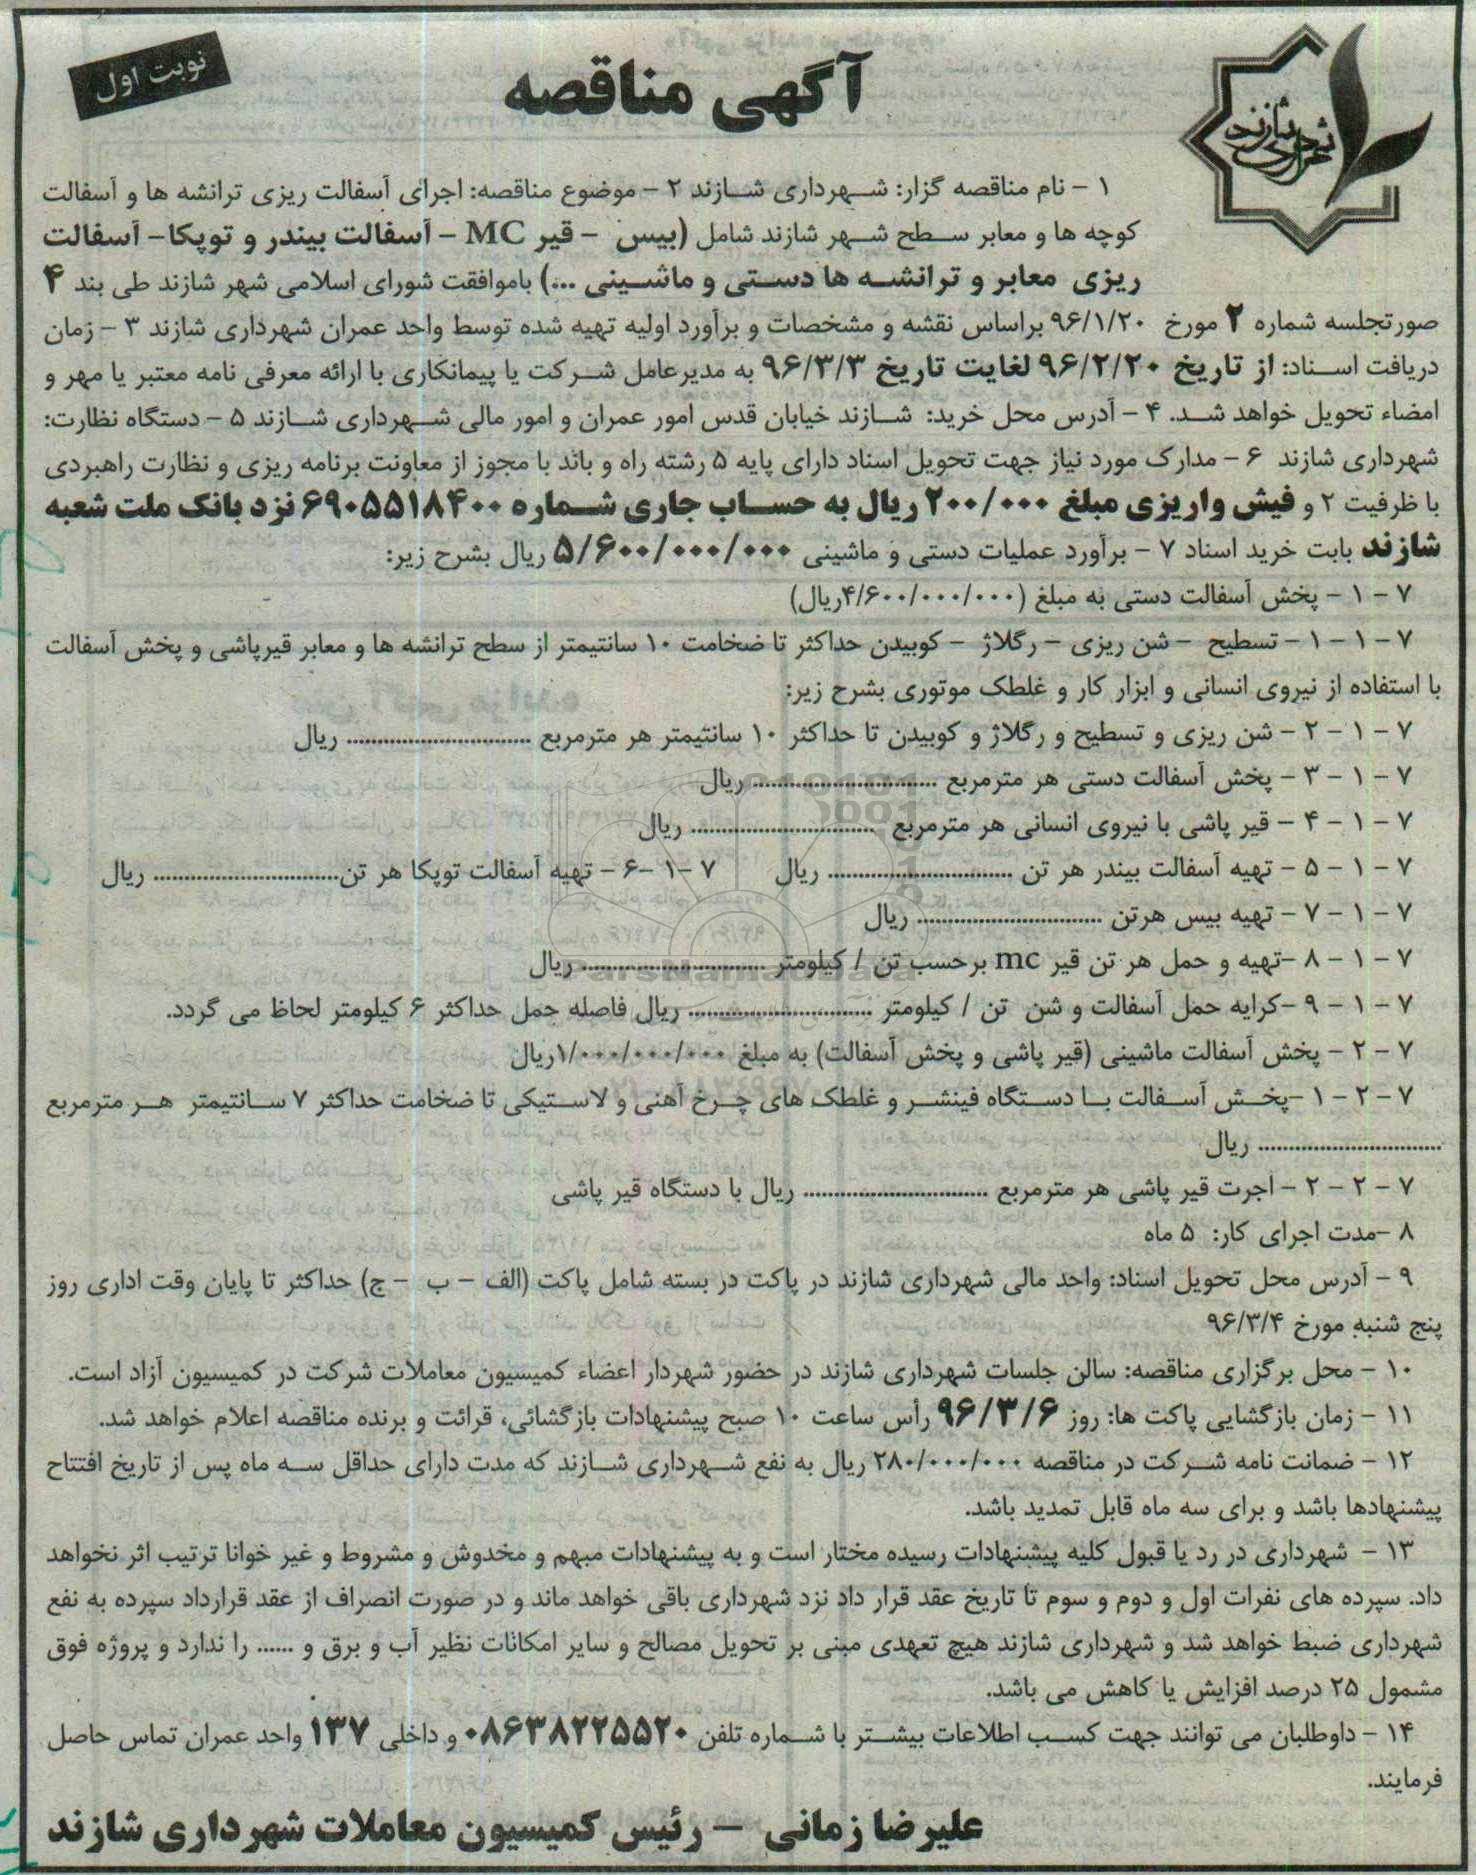 نوبت اول
آگهی مناقصه
شهرداری شازند
۱ – نام مناقصه گزار: شهرداری شازند ۲ – موضوع مناقصه: اجرای آسفالت ریزی ترانشه ها و آسفالت
کوچه ها و معابر سطح شهر شازند شامل (بیس – قیر MC – آسفالت بیندر و توپکا– آسفالت
ریزی معابر و ترانشه ها دستی و ماشینی ...) باموافقت شورای اسلامی شهر شازند طی بند ۴
صورتجلسه شماره ۲ مورخ ۹۶/۱/۲۰ براساس نقشه و مشخصات و برآورد اولیه تهیه شده توسط واحد عمران شهرداری شازند ۳ – زمان
دریافت اسناد: از تاریخ ۹۶/۲/۲۰ لغایت تاریخ ۹۶/۳/۳ به مدیرعامل شرکت یا پیمانکاری با ارائه معرفی نامه معتبر یا مهر و
امضاء تحویل خواهد شد. ۴ – آدرس محل خرید: شازند خیابان قدس امور عمران و امور مالی شهرداری شازند ۵ – دستگاه نظارت:
شهرداری شازند ۶ – مدارک مورد نیاز جهت تحویل اسناد دارای پایه ۵ رشته راه و باند با مجوز از معاونت برنامه ریزی و نظارت راهبردی
با ظرفیت ۲ و فیش واریزی مبلغ ۲۰۰/۰۰۰ ریال به حساب جاری شماره ۶۹۰۵۵۱۸۴۰۰ نزد بانک ملت شعبه
شازند بابت خرید اسناد ۷ – برآورد عملیات دستی و ماشینی ۵/۶۰۰/۰۰۰/۰۰۰ ریال بشرح زیر:
۷ – ۱ – پخش آسفالت دستی به مبلغ (۴/۶۰۰/۰۰۰/۰۰۰ریال)
۷ – ۱ – ۱ – تسطیح – شن ریزی – رگلاژ – کوبیدن حداکثر تا ضخامت ۱۰ سانتیمتر از سطح ترانشه ها و معابر قیرپاشی و پخش آسفالت
با استفاده از نیروی انسانی و ابزار کار و غلطک موتوری بشرح زیر:
۷ – ۱ – ۲ – شن ریزی و تسطیح و رگلاژ و کوبیدن تا حداکثر ۱۰ سانتیمتر هر مترمربع .............................. ریال
۷ – ۱ – ۳ – پخش آسفالت دستی هر مترمربع .............................. ریال
۷ – ۱ – ۴ – قیر پاشی با نیروی انسانی هر مترمربع .............................. ریال
۷ – ۱ – ۵ – تهیه آسفالت بیندر هر تن .............................. ریال ۷ –۱ –۶ – تهیه آسفالت توپکا هر تن.............................. ریال
۷ – ۱ – ۷ – تهیه بیس هرتن .............................. ریال
۷ – ۱ – ۸ –تهیه و حمل هر تن قیر mc برحسب تن / کیلومتر .............................. ریال
ParsNamadData
۷ – ۱ – ۹ –کرایه حمل آسفالت و شن تن / کیلومتر .............................. ریال فاصله حمل حداکثر ۶ کیلومتر لحاظ می گردد.
۷ – ۲ – پخش آسفالت ماشینی (قیر پاشی و پخش آسفالت) به مبلغ ۱/۰۰۰/۰۰۰/۰۰۰ریال
۷ – ۲ – ۱ –پخش آسفالت با دستگاه فینشر و غلطک های چرخ آهنی و لاستیکی تا ضخامت حداکثر ۷ سانتیمتر هر مترمربع
.............................. ریال
۷ – ۲ – ۲ – اجرت قیر پاشی هر مترمربع .............................. ریال با دستگاه قیر پاشی
۸ –مدت اجرای کار: ۵ ماه
۹ – آدرس محل تحویل اسناد: واحد مالی شهرداری شازند در پاکت در بسته شامل پاکت (الف – ب – ج) حداکثر تا پایان وقت اداری روز
پنج شنبه مورخ ۹۶/۳/۴
۱۰ – محل برگزاری مناقصه: سالن جلسات شهرداری شازند در حضور شهردار اعضاء کمیسیون معاملات شرکت در کمیسیون آزاد است.
۱۱ – زمان بازگشایی پاکت ها: روز ۹۶/۳/۶ رأس ساعت ۱۰ صبح پیشنهادات بازگشائی، قرائت و برنده مناقصه اعلام خواهد شد.
۱۲ – ضمانت نامه شرکت در مناقصه ۲۸۰/۰۰۰/۰۰۰ ریال به نفع شهرداری شازند که مدت دارای حداقل سه ماه پس از تاریخ افتتاح
پیشنهادها باشد و برای سه ماه قابل تمدید باشد.
۱۳ – شهرداری در رد یا قبول کلیه پیشنهادات رسیده مختار است و به پیشنهادات مبهم و مخدوش و مشروط و غیر خوانا ترتیب اثر نخواهد
داد. سپرده های نفرات اول و دوم و سوم تا تاریخ عقد قرار داد نزد شهرداری باقی خواهد ماند و در صورت انصراف از عقد قرارداد سپرده به نفع
شهرداری ضبط خواهد شد و شهرداری شازند هیچ تعهدی مبنی بر تحویل مصالح و سایر امکانات نظیر آب و برق و ...... را ندارد و پروژه فوق
مشمول ۲۵ درصد افزایش یا کاهش می باشد.
۱۴ – داوطلبان می توانند جهت کسب اطلاعات بیشتر با شماره تلفن ۰۸۶۳۸۲۲۵۵۲۰ و داخلی ۱۳۷ واحد عمران تماس حاصل
فرمایند.
علیرضا زمانی – رئیس کمیسیون معاملات شهرداری شازند